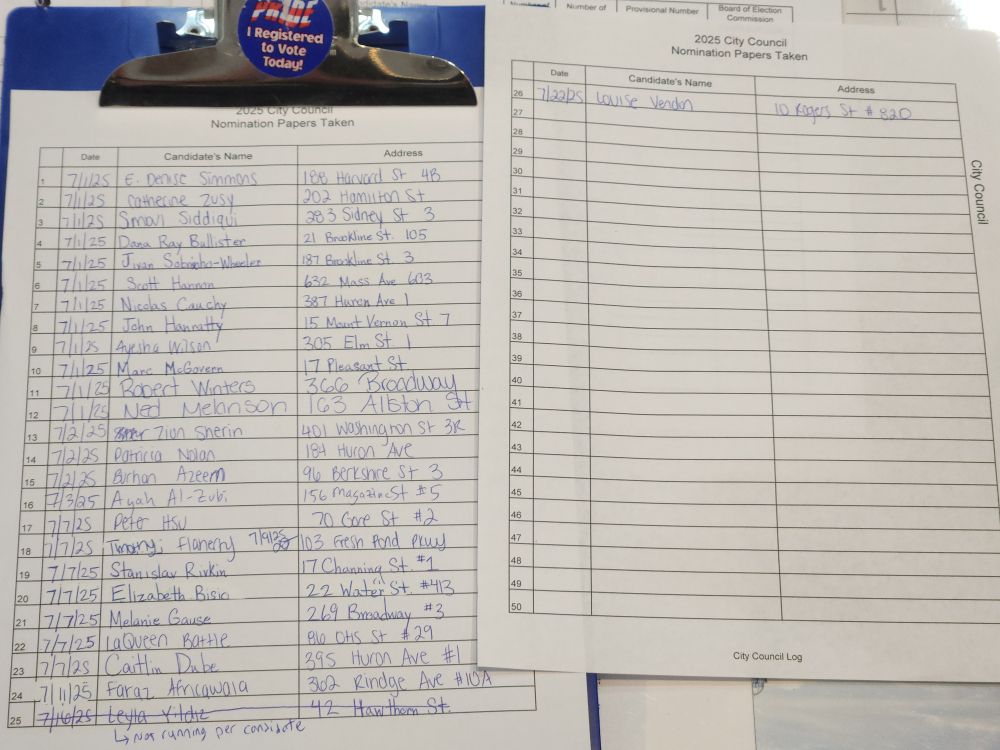 PRIDE
I Registered
to Vote
Today!
2025 City Council
Nomination Papers Taken
Date Candidate's Name Address
1 7/1/25 E. Denise Simmons 188 Harvard St 4B
2 7/1/25 Catherine Zusy 202 Hamilton St
3 7/1/25 Sumbul Siddiqui 283 Sidney St 3
4 7/1/25 Dana Ray Bullister 21 Brookline St. 105
5 7/1/25 Jivan Sobrinho-Wheeler 187 Brookline St. 3
6 7/1/25 Scott Hannon 632 Mass Ave 603
7 7/1/25 Nicolas Cauchy 387 Huron Ave 1
8 7/1/25 John Hanratty 15 Mount Vernon St 7
9 7/1/25 Ayesha Wilson 305 Elm St. 1
10 7/1/25 Marc McGovern 17 Pleasant St
11 7/1/25 Robert Winters 366 Broadway
12 7/1/25 Ned Melanson 163 Allston St
13 7/2/25 Zion Sherin 401 Washington St 3R
14 7/2/25 Patricia Nolan 184 Huron Ave
15 7/2/25 Burhan Azeem 96 Berkshire St 3
16 7/3/25 Ayah Al-Zubi 156 Magazine St #5
17 7/7/25 Peter Hsu 70 Gore St #2
18 7/7/25 Timothy Flaherty 7/9/25 103 Fresh Pond Pkwy
19 7/7/25 Stanislav Rivkin 17 Channing St. #1
20 7/7/25 Elizabeth Bisio 22 Water St. #413
21 7/7/25 Melanie Gause 269 Broadway #3
22 7/7/25 LaQueen Battle Otis St #29
23 7/7/25 Caitlin Dube 395 Huron Ave #1
24 7/11/25 Faraz Africawala 362 Rindge Ave #10A
25 7/16/25 Leyla Yildiz 42 Hawthorn St.
↳ Not running per candidate
Number of Number of Provisional Number Board of Election
Commission
2025 City Council
Nomination Papers Taken
Date Candidate's Name Address
26 7/22/25 Louise Venden 10 Rogers St #820
27
28
29
30
31
32
33
34
35
36
37
38
39
40
41
42
43
44
45
46
47
48
49
50
City Council
City Council Log